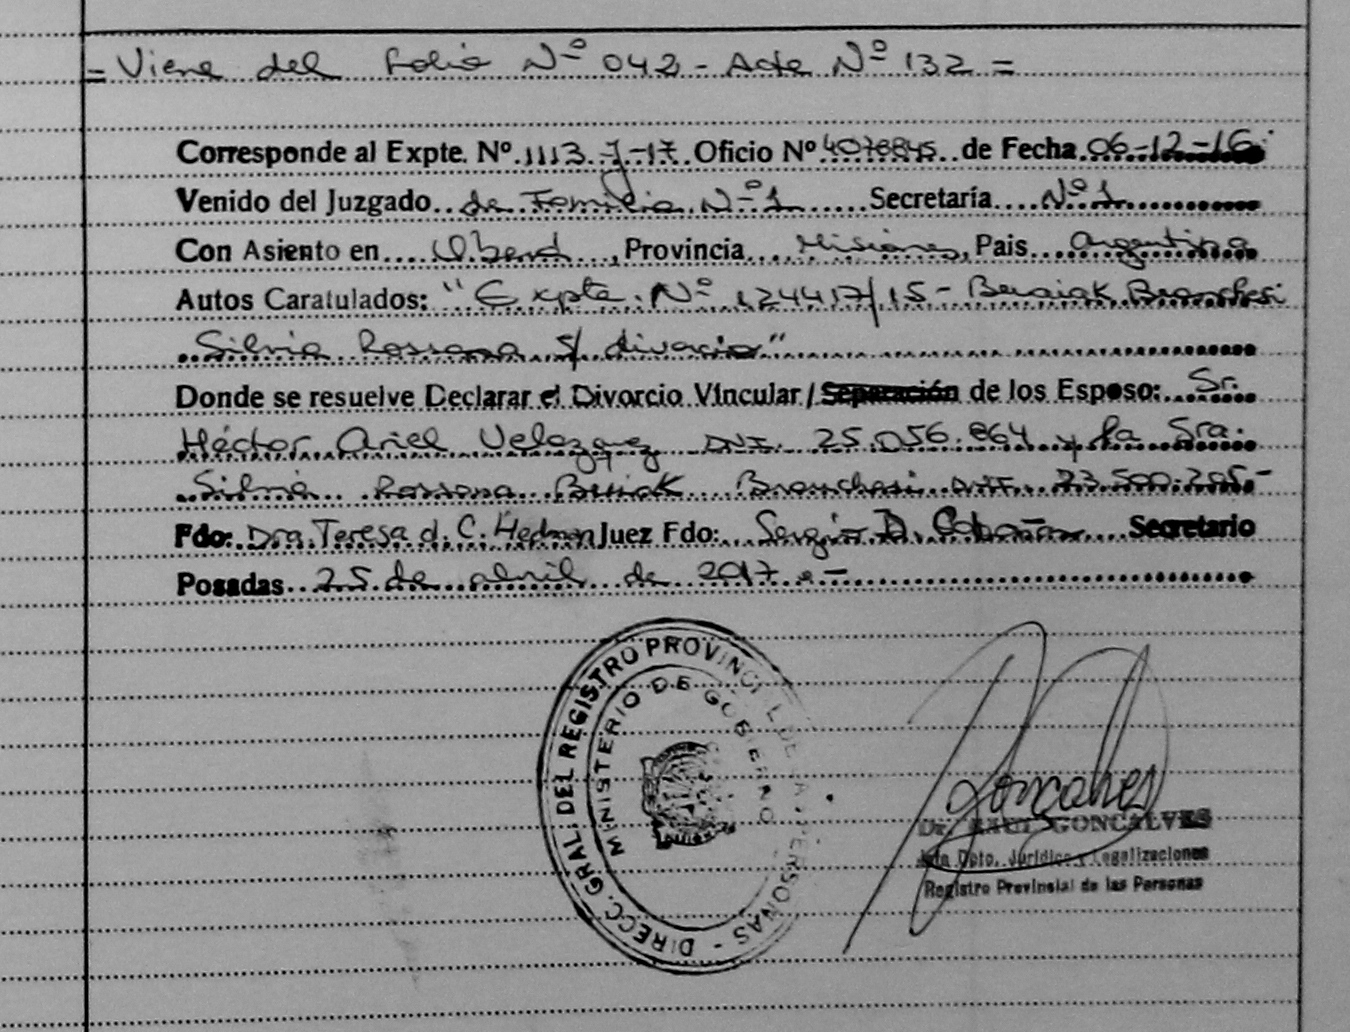 = Viene del Folio Nº 042 - Acta Nº 132 =
Corresponde al Expte. Nº 1113-J-17 Oficio Nº 4078845 de Fecha 06-12-16
Venido del Juzgado de Familia Nº 1 Secretaría Nº 1
Con Asiento en Oberá, Provincia Misiones, Pais Argentina
Autos Caratulados: "Expte. Nº 124417/15 - Branchesi
Silvia Rossana s/ divorcio"
Donde se resuelve Declarar el Divorcio Vincular / Separación de los Esposo: Sr.
Héctor Ariel Velazquez DNI. 25.056.864 y la Sra.
Silvia Rossana Branchesi DNI. 23.500.205.-
Fdo: Dra. Teresa d. C. Juez Fdo: Sergio D. Secretario
Posadas 25 de abril de 2017.-
DIRECC. GRAL. DEL REGISTRO PROVINCIAL DE LAS PERSONAS -
MINISTERIO DE GOBIERNO
Goncalves
Dr. RAUL GONCALVES
Jefe Dpto. Jurídico y Legalizaciones
Registro Provincial de las Personas